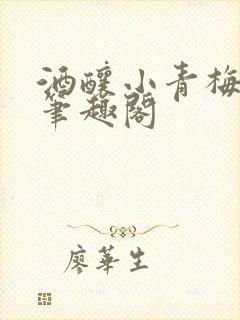 酒釀小青梅
筆趣閣
廖華生